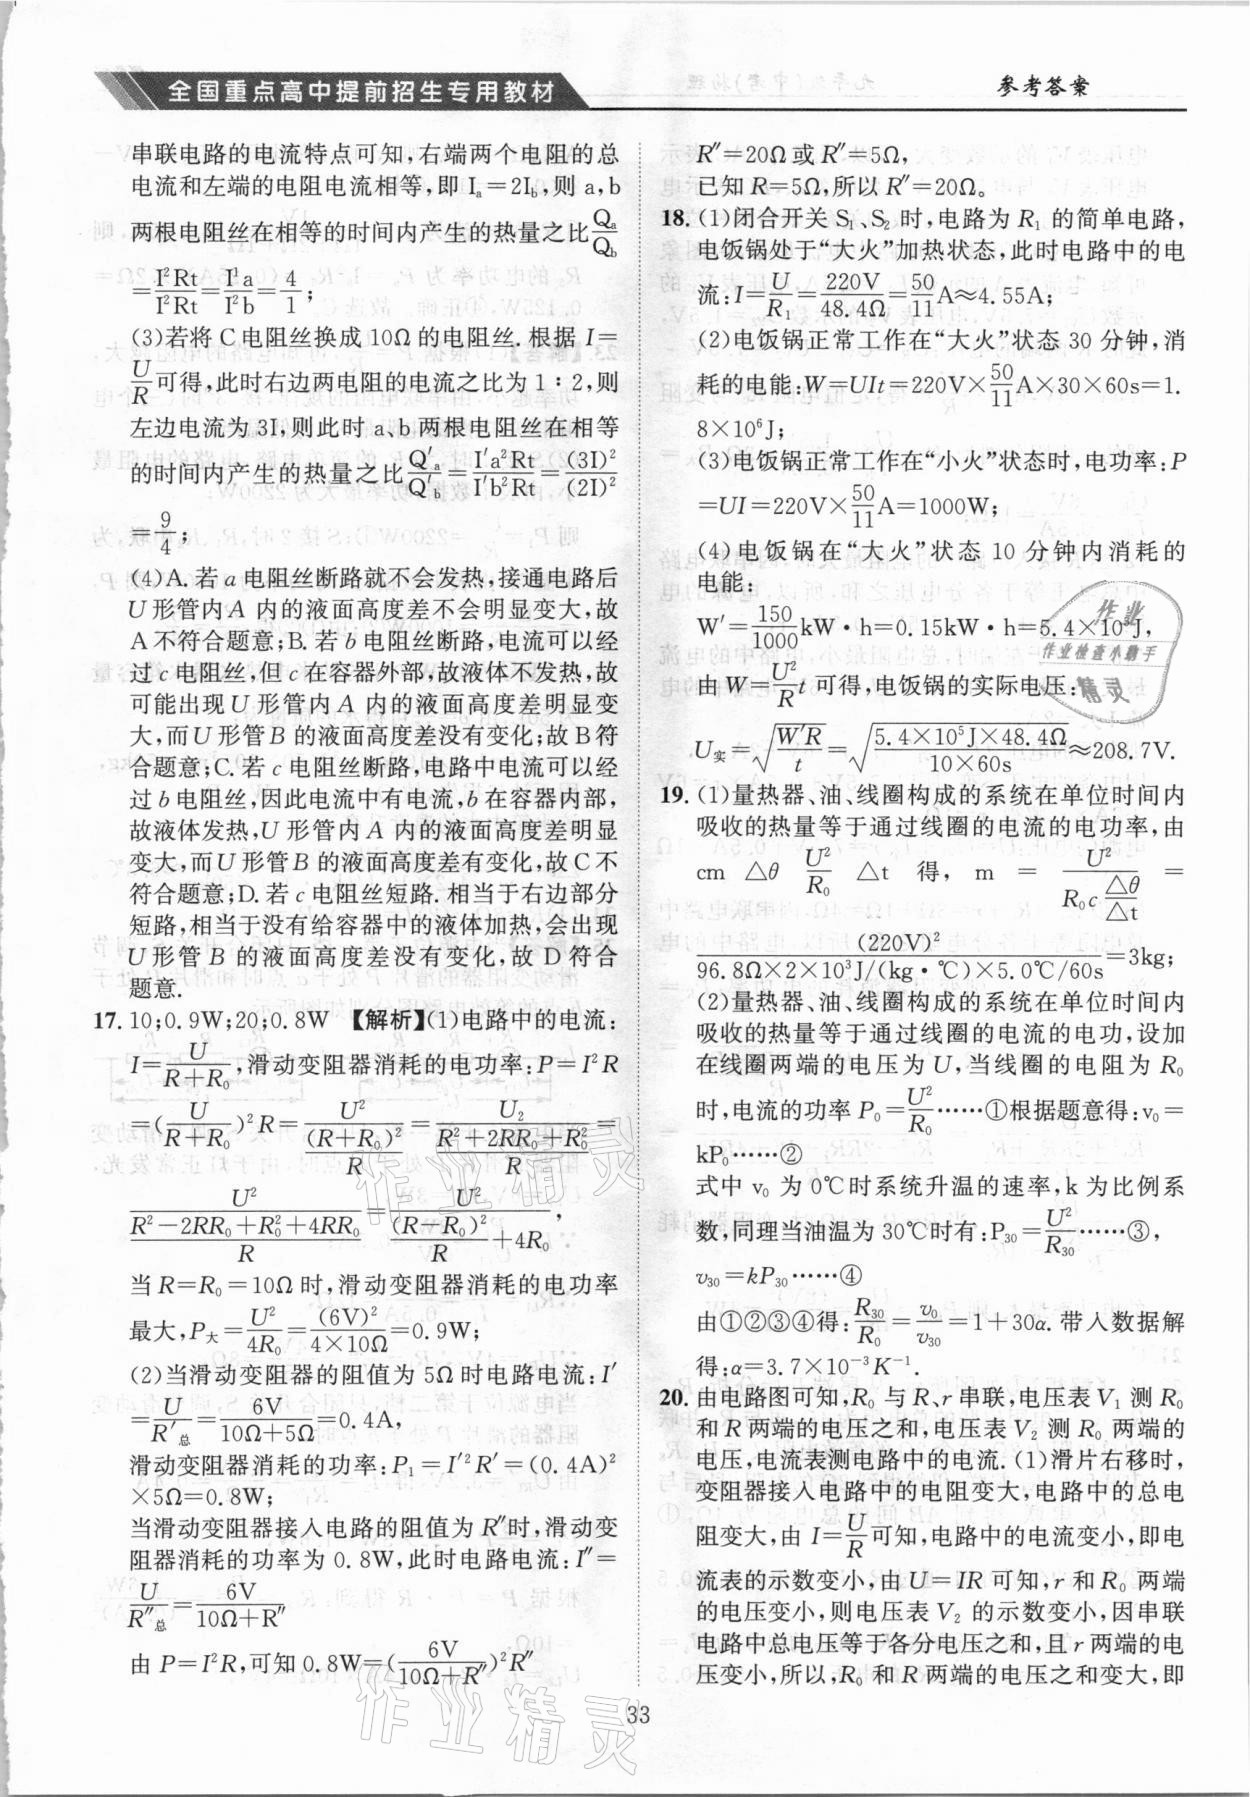 全国重点高中提前招生专用教材
参考答案
串联电路的电流特点可知,右端两个电阻的总
电流和左端的电阻电流相等,即 Iₐ=2I_b,则 a、b
两根电阻丝在相等的时间内产生的热量之比Qₐ/Q_b
=I²Rt/I²Rt=I²a/I²b=4/1;
(3)若将 C 电阻丝换成 10Ω 的电阻丝. 根据 I=
U/R可得,此时右边两电阻的电流之比为 1∶2,则
左边电流为 3I,则此时 a、b 两根电阻丝在相等
的时间内产生的热量之比Q′ₐ/Q′_b=I′a²Rt/I′b²Rt=(3I)²/(2I)²
=9/4;
(4)A. 若 a 电阻丝断路就不会发热,接通电路后
U 形管内 A 内的液面高度差不会明显变大,故
A 不符合题意;B. 若 b 电阻丝断路,电流可以经
过 c 电阻丝,但 c 在容器外部,故液体不发热,故
可能出现 U 形管内 A 内的液面高度差明显变
大,而 U 形管 B 的液面高度差没有变化;故 B 符
合题意;C. 若 c 电阻丝断路,电路中电流可以经
过 b 电阻丝,因此电流中有电流,b 在容器内部,
故液体发热,U 形管内 A 内的液面高度差明显
变大,而 U 形管 B 的液面高度差有变化,故 C 不
符合题意;D. 若 c 电阻丝短路. 相当于右边部分
短路,相当于没有给容器中的液体加热,会出现
U 形管 B 的液面高度差没有变化,故 D 符合
题意.
17. 10;0.9W;20;0.8W 【解析】(1)电路中的电流:
I=U/(R+R₀),滑动变阻器消耗的电功率:P=I²R
=(U/(R+R₀))²R=U²/((R+R₀)²/R)=U₂/((R²+2RR₀+R₀²)/R)=
U²/((R²−2RR₀+R₀²+4RR₀)/R)=U²/((R−R₀)²/R+4R₀),
当 R=R₀=10Ω 时,滑动变阻器消耗的电功率
最大,P大=U²/4R₀=(6V)²/(4×10Ω)=0.9W;
(2)当滑动变阻器的阻值为 5Ω 时电路电流:I′
=U/R′总=6V/(10Ω+5Ω)=0.4A,
滑动变阻器消耗的功率:P₁=I′²R′=(0.4A)²
×5Ω=0.8W;
当滑动变阻器接入电路的阻值为 R″时,滑动变
阻器消耗的功率为 0.8W,此时电路电流:I″=
U/R″总=6V/(10Ω+R″)
由 P=I²R,可知 0.8W=(6V/(10Ω+R″))²R″
R″=20Ω 或 R″=5Ω,
已知 R=5Ω,所以 R″=20Ω。
18. (1)闭合开关 S₁、S₂ 时,电路为 R₁ 的简单电路,
电饭锅处于“大火”加热状态,此时电路中的电
流:I=U/R₁=220V/48.4Ω=50/11A≈4.55A;
(2)电饭锅正常工作在“大火”状态 30 分钟,消
耗的电能:W=UIt=220V×50/11A×30×60s=1.
8×10⁶J;
(3)电饭锅正常工作在“小火”状态时,电功率:P
=UI=220V×50/11A=1000W;
(4)电饭锅在“大火”状态 10 分钟内消耗的
电能:
W′=150/1000kW·h=0.15kW·h=5.4×10⁵J,
由 W=U²/R t 可得,电饭锅的实际电压:
U实=√(W′R/t)=√(5.4×10⁵J×48.4Ω/(10×60s))≈208.7V.
19. (1)量热器、油、线圈构成的系统在单位时间内
吸收的热量等于通过线圈的电流的电功率,由
cm△θ U²/R₀ △t 得,m=U²/(R₀c △θ/△t)=
(220V)²/(96.8Ω×2×10³J/(kg·℃)×5.0℃/60s)=3kg;
(2)量热器、油、线圈构成的系统在单位时间内
吸收的热量等于通过线圈的电流的电功,设加
在线圈两端的电压为 U,当线圈的电阻为 R₀
时,电流的功率 P₀=U²/R₀……①根据题意得:v₀=
kP₀……②
式中 v₀ 为 0℃时系统升温的速率,k 为比例系
数,同理当油温为 30℃时有:P₃₀=U²/R₃₀……③,
v₃₀=kP₃₀……④
由①②③④得:R₃₀/R₀=v₀/v₃₀=1+30α. 带入数据解
得:α=3.7×10⁻³K⁻¹.
20. 由电路图可知,R₀ 与 R、r 串联,电压表 V₁ 测 R₀
和 R 两端的电压之和,电压表 V₂ 测 R₀ 两端的
电压,电流表测电路中的电流. (1)滑片右移时,
变阻器接入电路中的电阻变大,电路中的总电
阻变大,由 I=U/R可知,电路中的电流变小,即电
流表的示数变小,由 U=IR 可知,r 和 R₀ 两端
的电压变小,则电压表 V₂ 的示数变小,因串联
电路中总电压等于各分电压之和,且 r 两端的电
压变小,所以,R₀ 和 R 两端的电压之和变大,即
33
作业
作业检查小助手
精灵
作业精灵
作业精灵